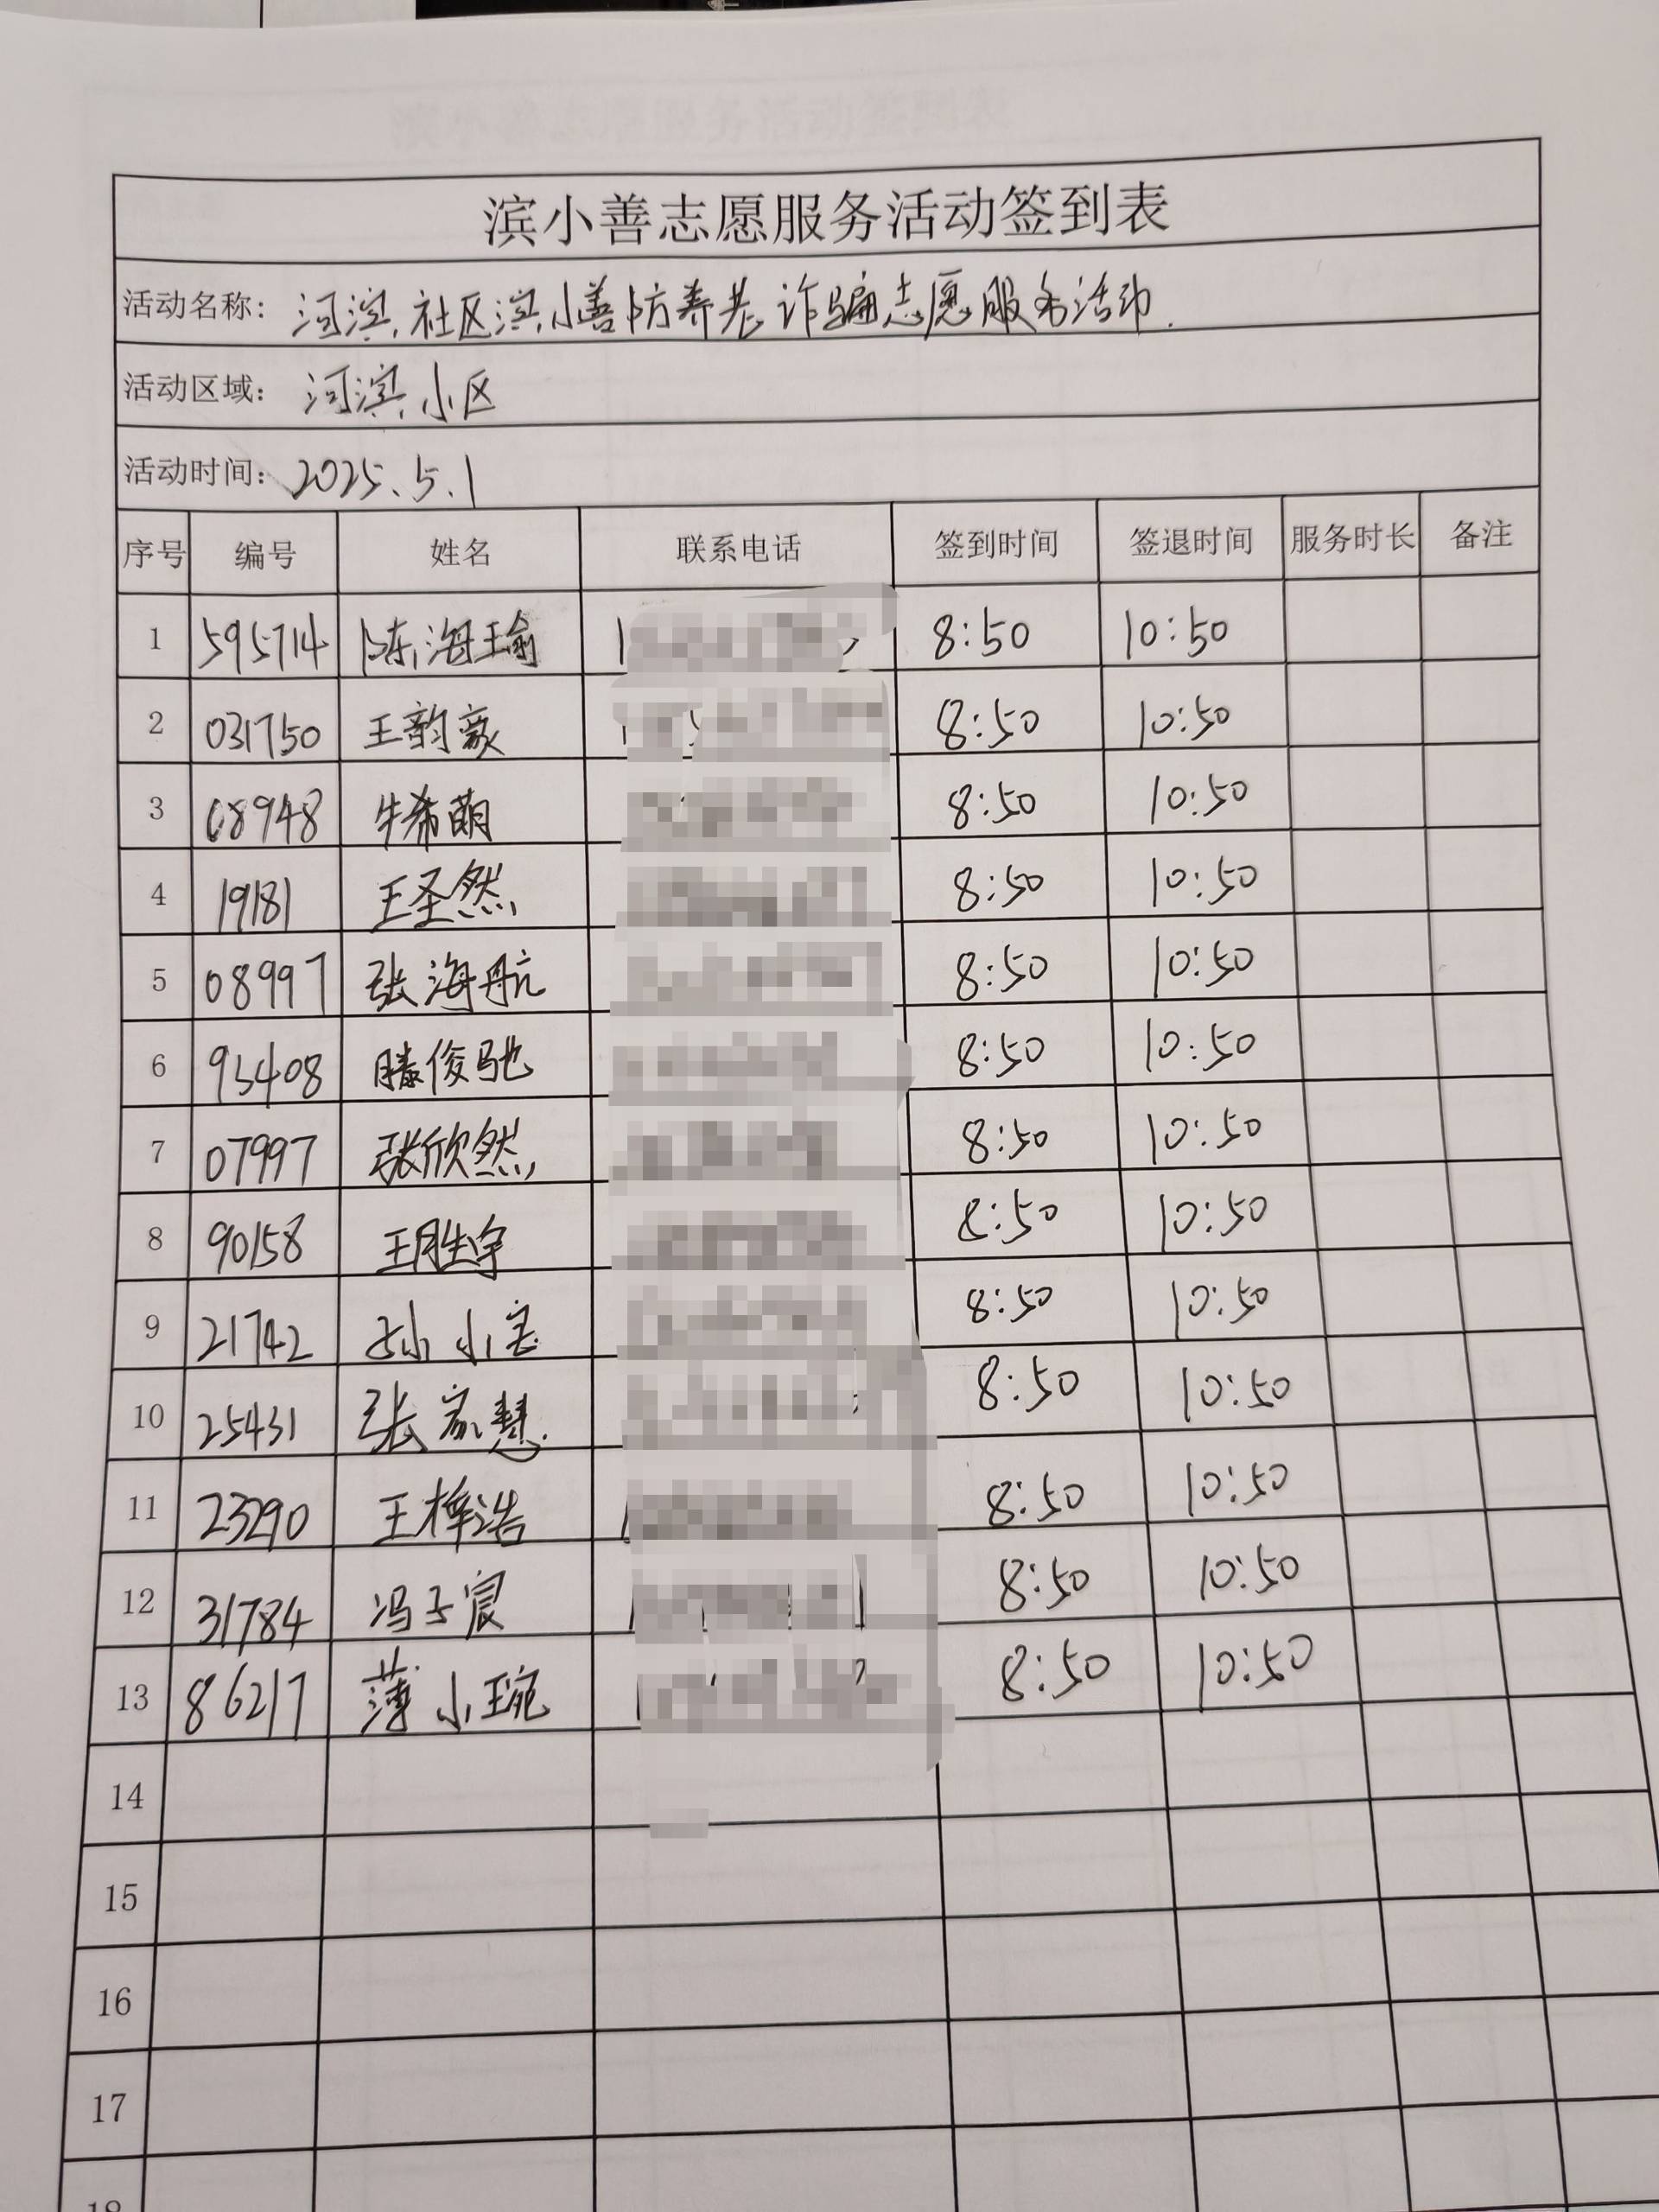 滨小善志愿服务活动签到表
活动名称: 河滨社区滨小善防养老诈骗志愿服务活动.
活动区域: 河滨小区
活动时间: 2025.5.1
序号 编号 姓名 联系电话 签到时间 签退时间 服务时长 备注
1 595714 陈海瑜 8:50 10:50
2 031750 王韵豪 8:50 10:50
3 08948 牛希萌 8:50 10:50
4 19181 王圣然 8:50 10:50
5 08997 张海航 8:50 10:50
6 93408 滕俊驰 8:50 10:50
7 07997 张欣然 8:50 10:50
8 90158 王胜宇 8:50 10:50
9 21742 孙小宝 8:50 10:50
10 25431 张家慧 8:50 10:50
11 23290 王梓浩 8:50 10:50
12 31784 冯子宸 8:50 10:50
13 86217 薄小琬 8:50 10:50
14
15
16
17
18